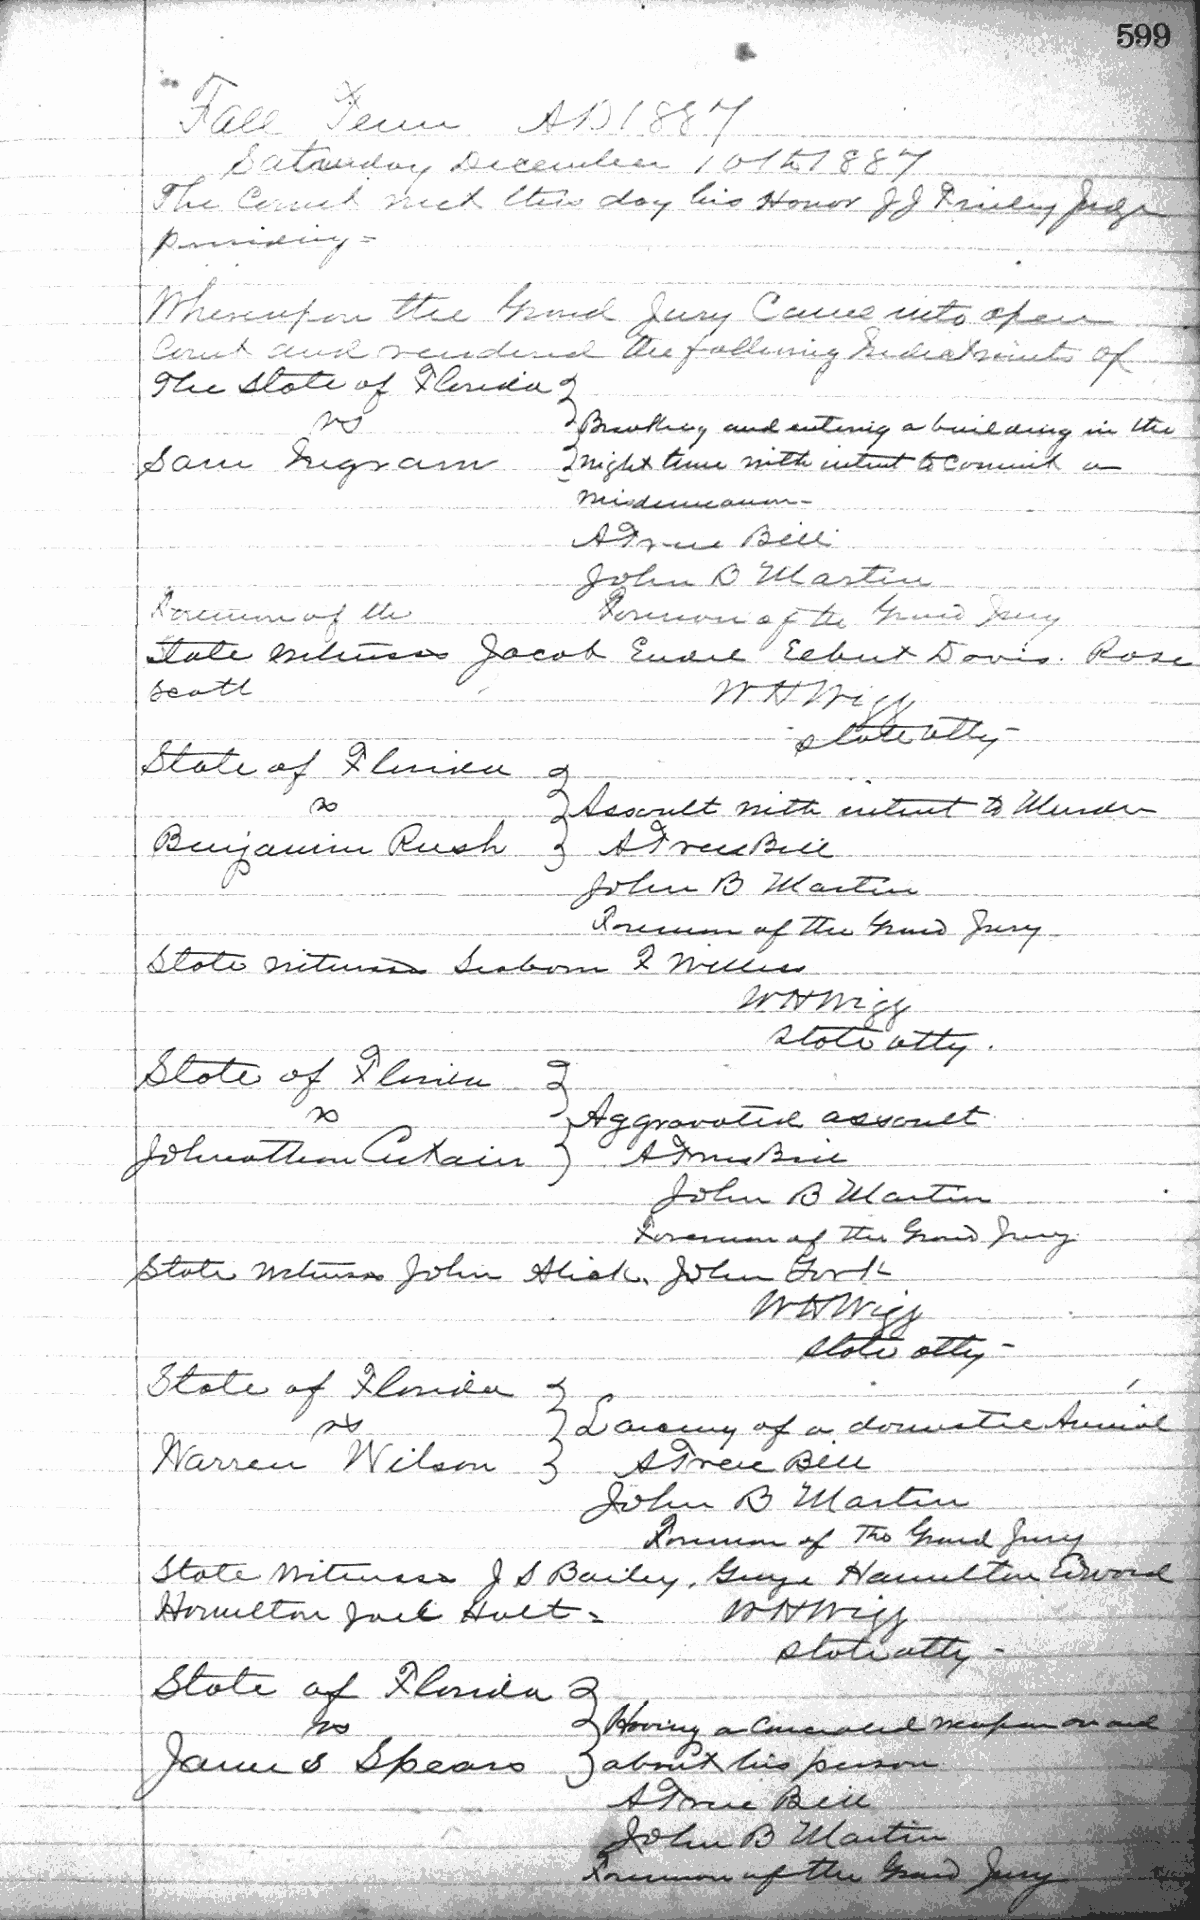 599
Fall Term AD 1887
Saturday December 10th 1887
The Court met this day his Honor J J Finley Judge
presiding =
Whereupon the Grand Jury Came into open
Court and rendered the following Indictments of
The State of Florida
vs
Breaking and entering a building in the
Sam Ingram night time with intent to Commit a
misdemeanor -
A True Bill
John B Martin
Foreman of the Foreman of the Grand Jury
State Witnesses Jacob Endel Elbert Davis. Rosa
Scott W H Wigg
State atty -
State of Florida
vs Assault with intent to Murder
Benjamin Rush A True Bill
John B Martin
Foreman of the Grand Jury
State witnesses Seaborn F Willis
W H Wigg
State atty.
State of Florida
vs Aggravated assault
Johnathan A True Bill
John B Martin
Foreman of the Grand Jury
State Witnesses John John
W H Wigg
State atty -
State of Florida
vs Larceny of a domestic Animal
Warren Wilson A True Bill
John B Martin
Foreman of The Grand Jury
State Witnesses J S Bailey, George Hamilton Edward
Hamilton Joel Holt = W H Wigg
State atty -
State of Florida
vs Having a Concealed weapon on and
James Spears about his person
A True Bill
John B Martin
Foreman of the Grand Jury